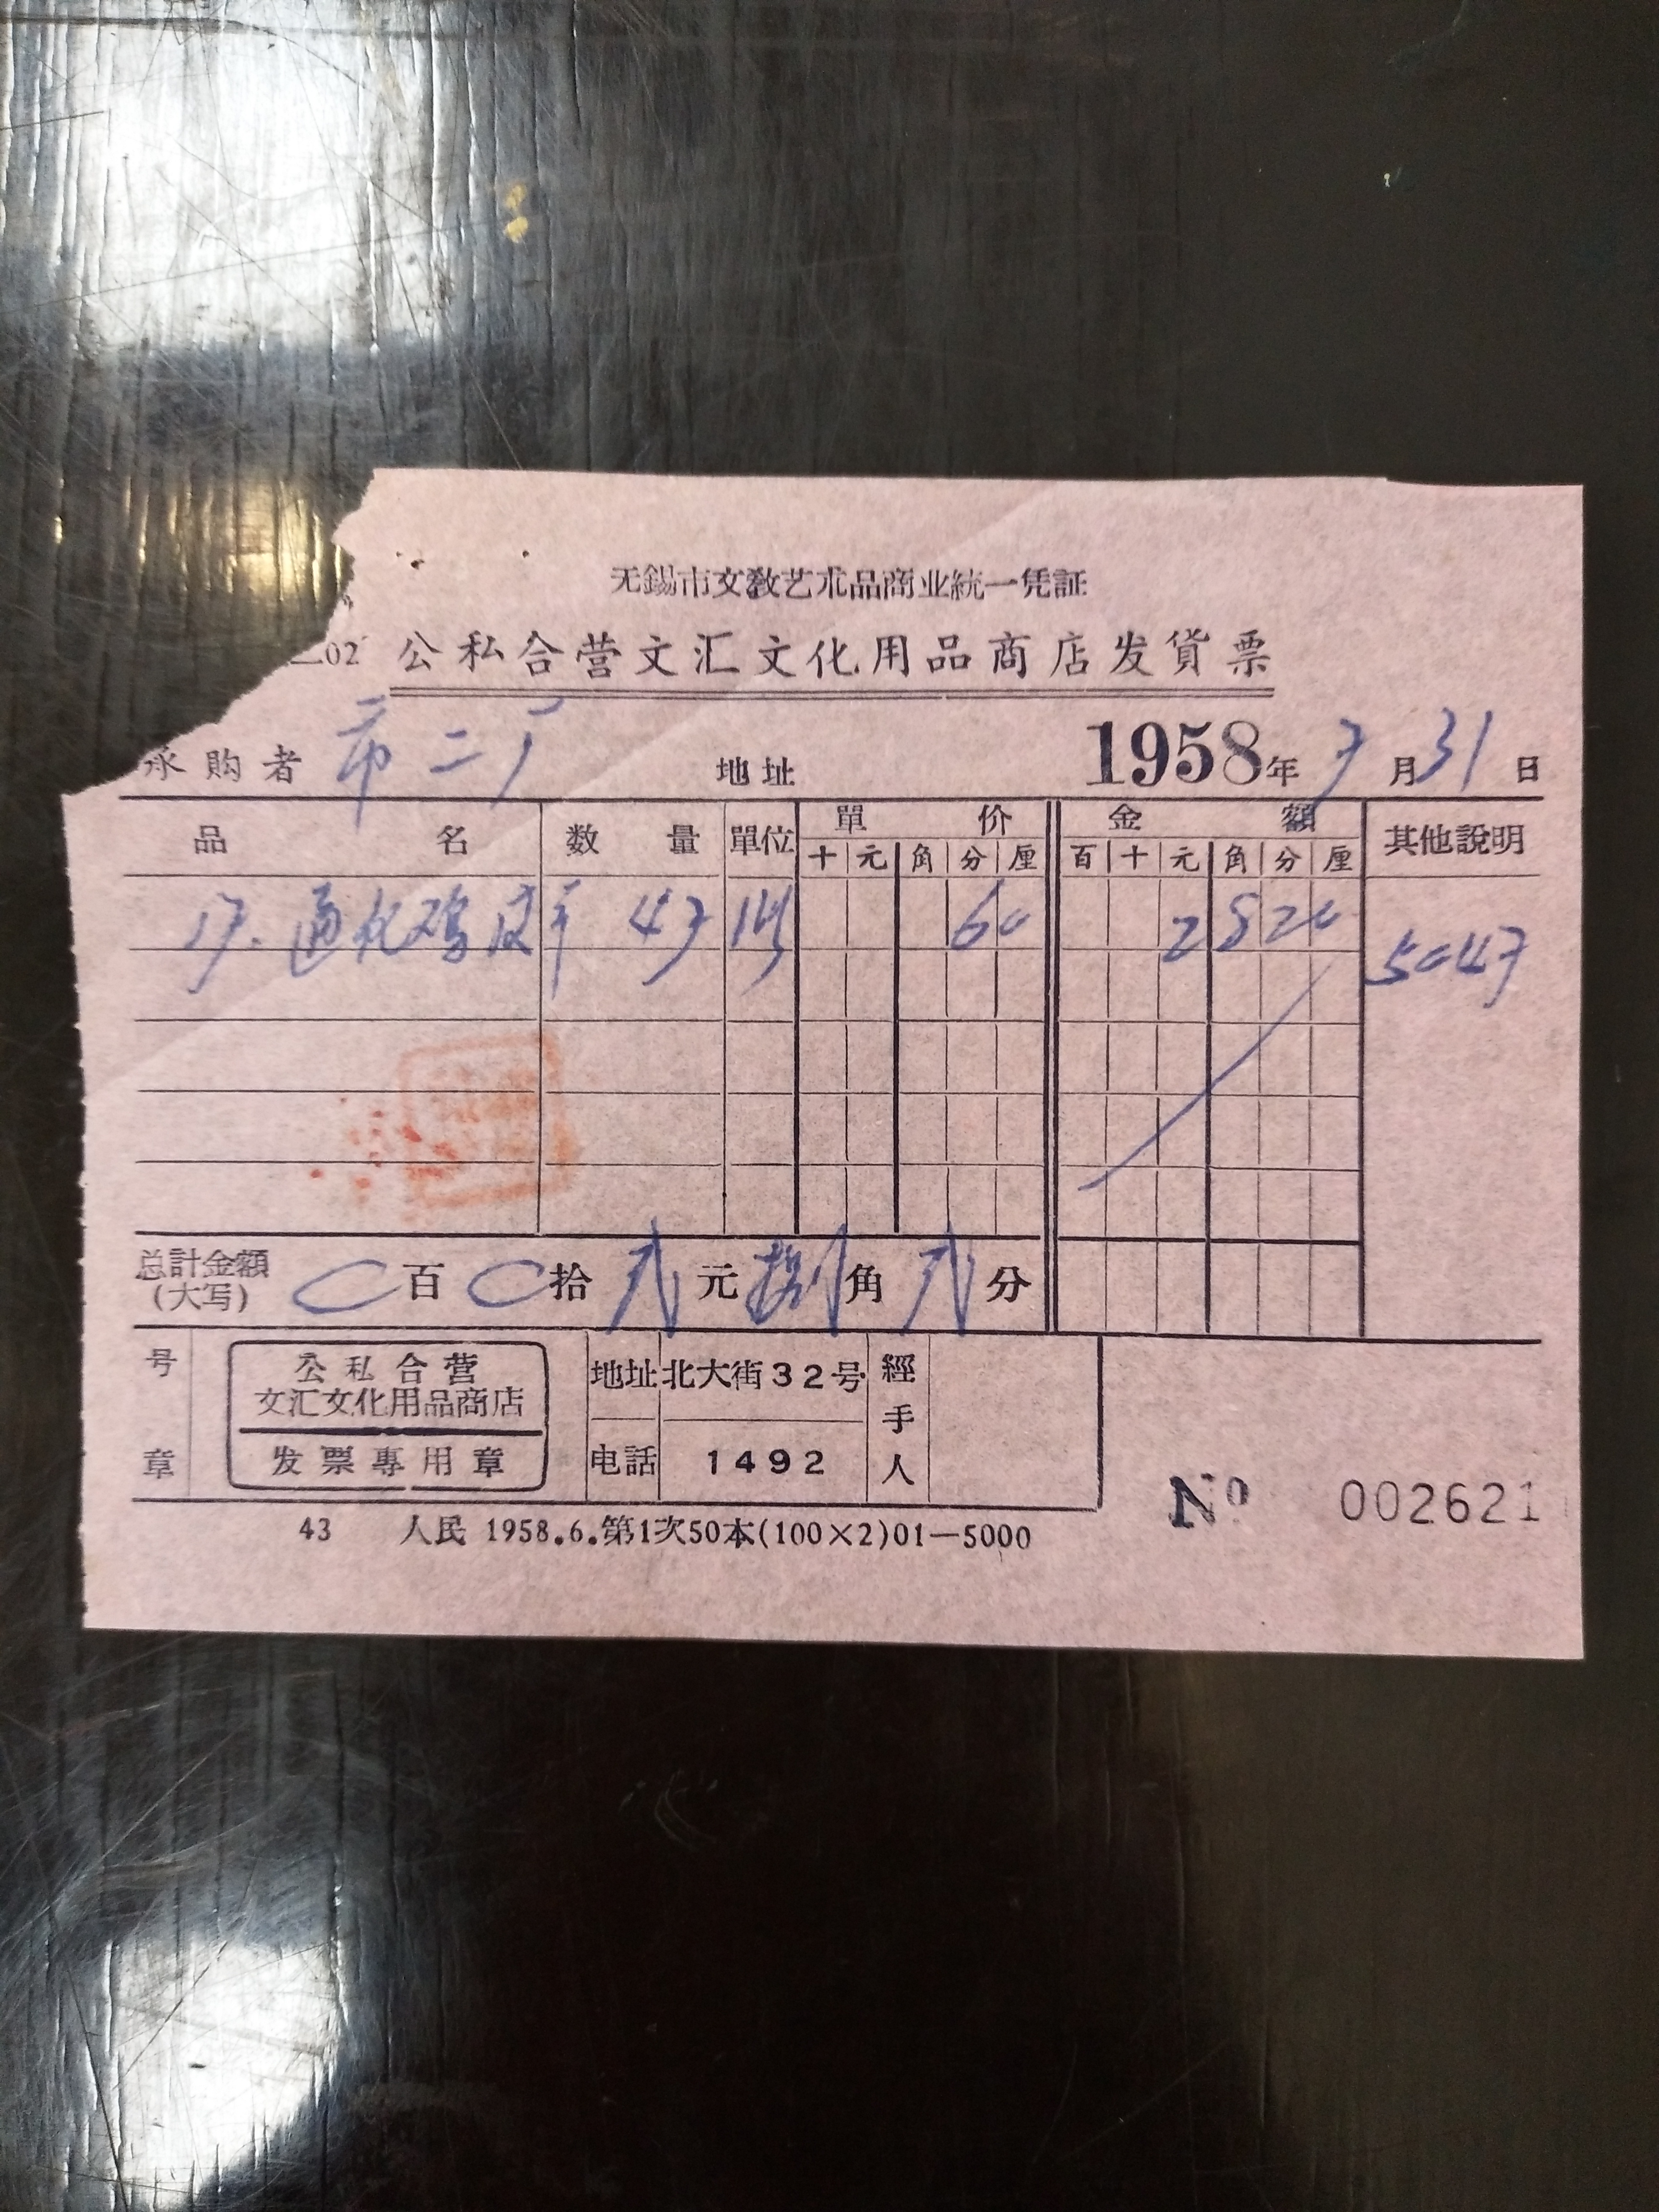 无錫市文敎艺朮品商业統一凭証
02 公私合营文汇文化用品商店发貨票
承购者 市二厂 地址 1958年 7月31日
品名 数量 單位 單价 金額 其他說明
十 元 角 分 厘 百 十 元 角 分 厘
47 60 2 8 2 0 5047
总計金額 0百0拾贰元捌角贰分
(大写)
号章 公私合营 地址 北大街32号 經手人
文汇文化用品商店
发票專用章 电話 1492
№ 002621
43 人民 1958.6.第1次50本(100×2)01—5000